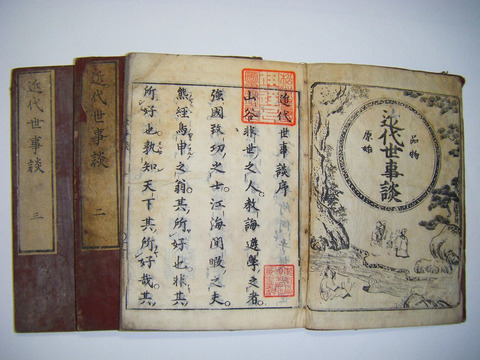 品物
近代世事談
原始
近代世事談序
山谷非世之人教誨遊學之者
強國致功之士江海閒暇之夫
熊經鳥申之翁其所好也非其
所好也孰知天下其所好哉其
近代世事談 二
近代世事談 三